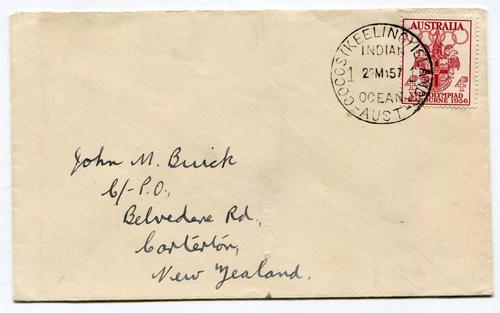 COCOS (KEELING) ISLANDS
INDIAN
1 2 MR 57 1
OCEAN
-AUST-
AUSTRALIA
4D 4D
XVI OLYMPIAD
MELBOURNE 1956
John M. Buick
C/- P.O.,
Belvedere Rd.,
Carterton,
New Zealand.